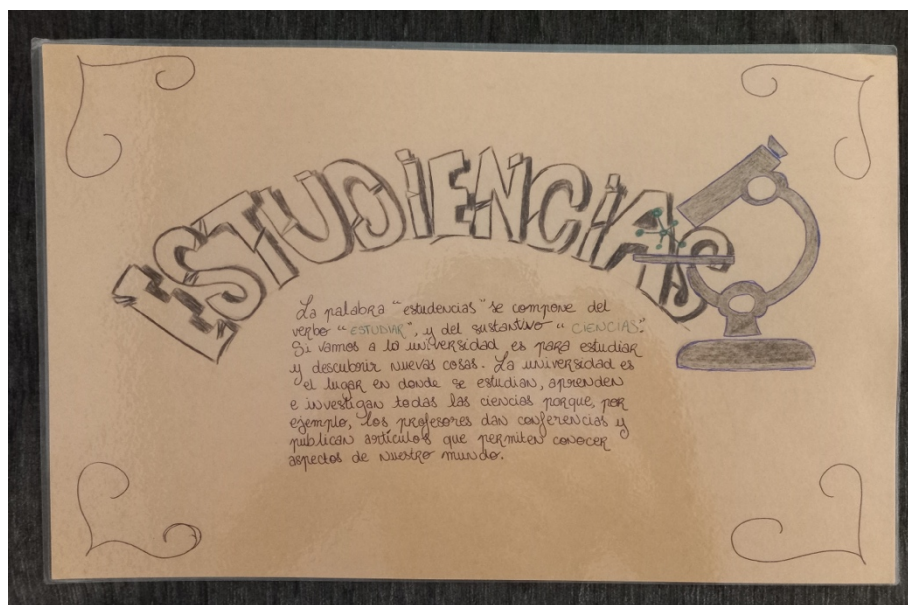 ESTUDIENCIAS
La palabra "estudencias" se compone del
verbo "ESTUDIAR", y del sustantivo "CIENCIAS".
Si vamos a la universidad es para estudiar
y descubrir nuevas cosas. La universidad es
el lugar en donde se estudian, aprenden
e investigan todas las ciencias porque, por
ejemplo, los profesores dan conferencias y
publican artículos que permiten conocer
aspectos de nuestro mundo.